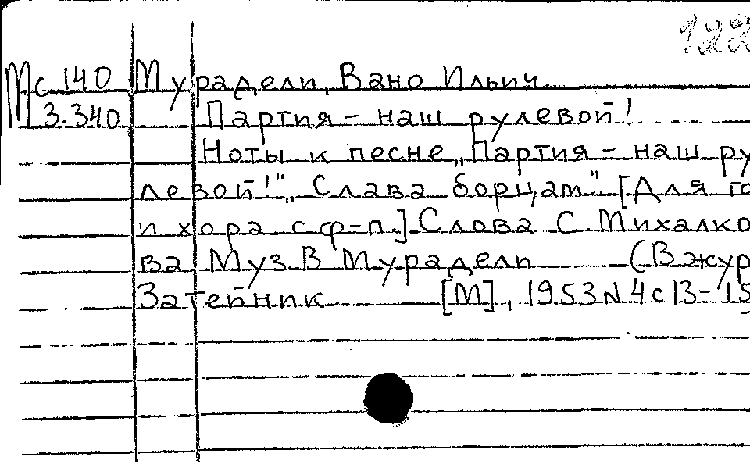 122
Мс 140 Мурадели, Вано Ильич
3.340 Партия – наш рулевой!
Ноты к песне „Партия – наш ру
левой!" „Слава борцам" [Для го
и хора с ф-п.] Слова С. Михалко
ва Муз. В Мурадели (В жур
Затейник [М], 1953 N 4 с 13-15